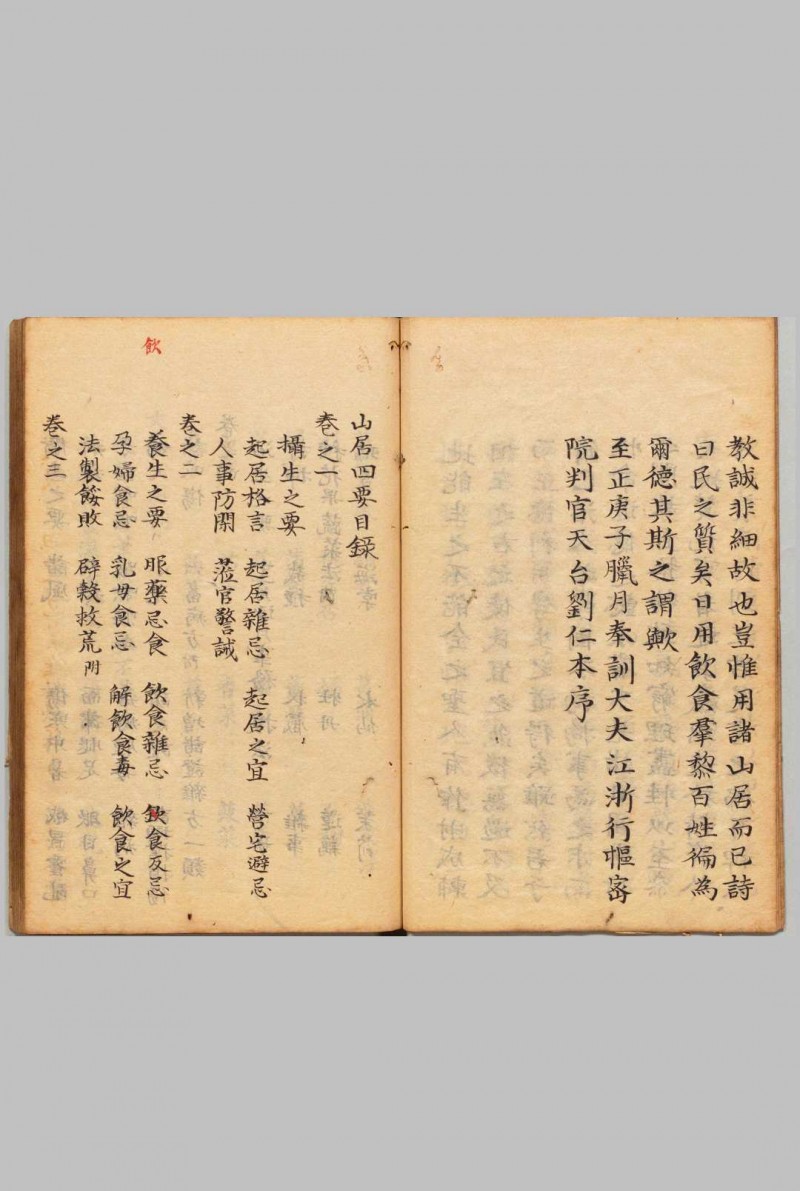 教誡非細故也豈惟用諸山居而已詩
曰民之質矣日用飲食羣黎百姓徧為
爾德其斯之謂歟
至正庚子臘月奉訓大夫江浙行樞密
院判官天台劉仁本序
山居四要目錄
卷之一
攝生之要
起居格言 起居雜忌 起居之宜 營宅避忌
人事防閑 蒞官警誡
卷之二
養生之要 服藥忌食 飲食雜忌 飲食反忌
孕婦食忌 乳母食忌 解飲食毒 飲食之宜
法製餒敗 辟穀救荒附
卷之三
飲